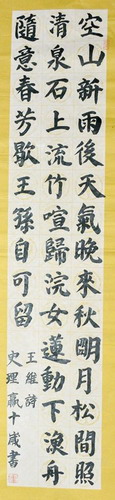 空山新雨後天氣晚來秋明月松間照
清泉石上流竹喧歸浣女蓮動下漁舟
隨意春芳歇王孫自可留
王維詩
史理贏十歲書